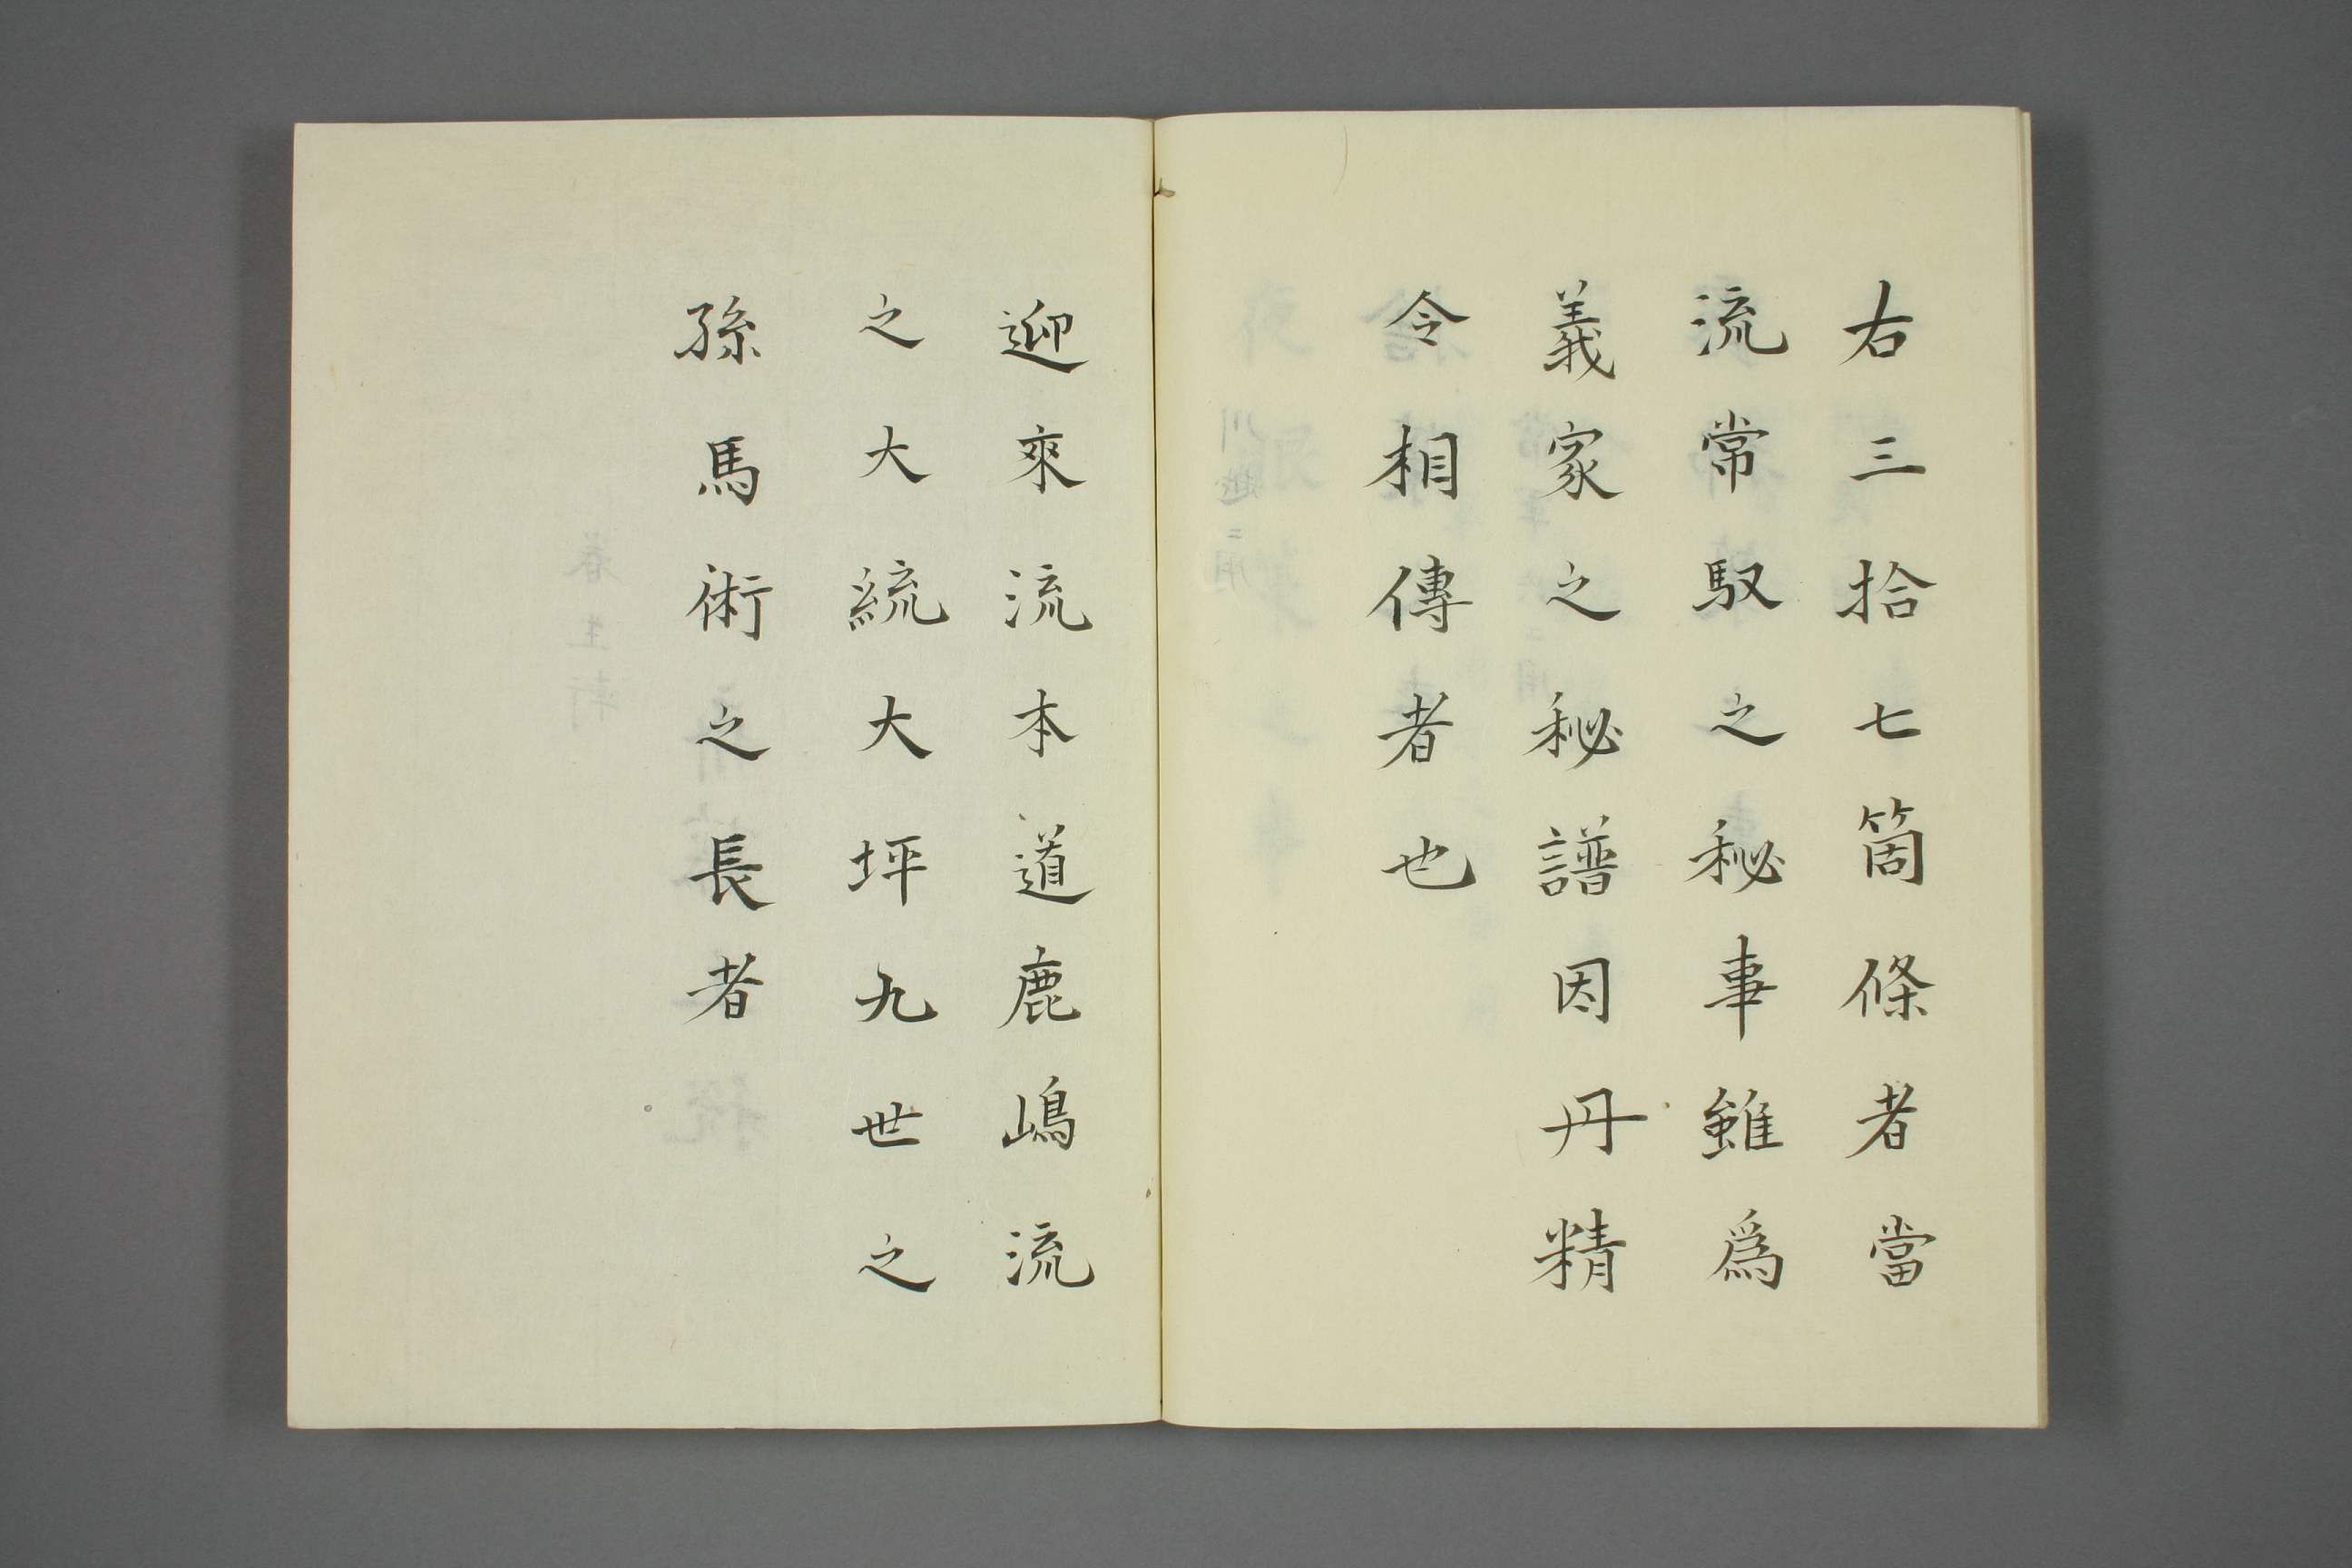 右三拾七箇條者當
流常馭之秘事雖爲
義家之秘譜因丹精
令相傳者也
迎來流本道鹿嶋流
之大統大坪九世之
孫馬術之長者